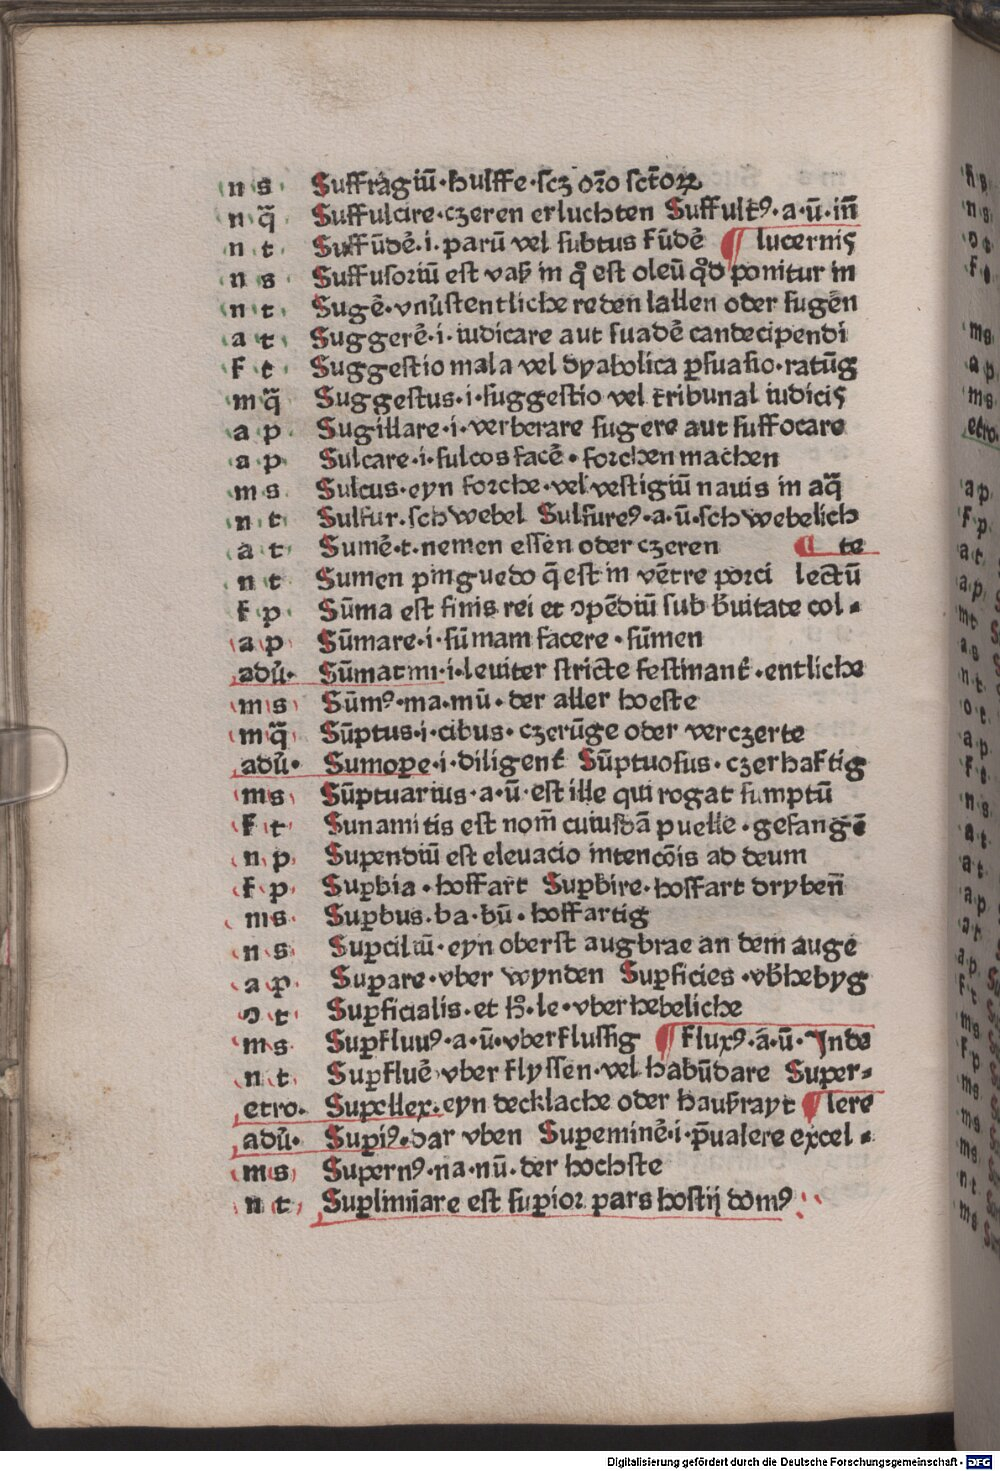 n s Suffragiū·hulffe·scz or̄o sc̄torꝝ
n q̄ Suffulcire·czeren erluchten Suffultꝰ·a·ū·in̄
n t Suffūdē·i·parū vel subtus fūdē ¶ lucernis
n s Suffusoriū est vaß in qͦ est oleū qͦd ponitur in
n t Sugē·vnůstentliche reden lallen oder sugēn
a t Suggerē·i·iudicare aut suadē candecipendi
f t Suggestio mala vel dyabolica ꝑsuasio·ratūg
m q̄ Suggestus·i·suggestio vel tribunal iudicis
a p Sugillare·i·verberare sugere aut suffocare
a p Sulcare·i·sulcos facē·forchen machen
m s Sulcus·eyn forche·vel vestigiū nauis in aq̄
n t Sulfur·schwebel Sulfureꝰ·a·ū·schwebelich
a t Sumē·t·nemen essen oder czeren ¶ te
n t Sumen pinguedo q̄ est in vētre porci lectū
f p Sūma est finis rei et ꝯpēdiū sub b̄uitate col-
a p Sūmare·i·sūmam facere·sūmen
adū· Sūmatim·i·leuiter stricte festinant̄·entliche
m s Sūmꝰ·ma·mū·der aller hoeste
m q̄ Sūptus·i·cibus·czerūge oder verczerte
adū· Sumoꝑe·i·diligent̄ Sūptuosus·czerhaftig
m s Sūptuarius·a·ū·est ille qui rogat sumptū
f t Sunamitis est nom̄ cuiusdā puelle·gefangē
n p Suꝑendiū est eleuacio intencōis ad deum
f p Suꝑbia·hoffart Suꝑbire·hoffart dryben̄
m s Suꝑbus·ba·bū·hoffartig
n s Suꝑciliū·eyn oberst augbrae an dem auge
a p Suꝑare·vber wynden Suꝑficies·vb̄hebyg
o t Suꝑficialis·et hͦ·le·vberhebeliche
m s Suꝑfluuꝰ·a·ū·vberflussig ¶ fluxꝰ·a·ū·Inde
n t Suꝑfluē vber flyssen·vel habūdare Super-
etro· Suꝑllex·eyn decklache oder haußrayt ¶ lere
adū· Suꝑiꝰ·dar vben Suꝑeminē·i·p̄ualere excel-
m s Supernꝰ·na·nū·der hochste
n t Suꝑliminare est suꝑior pars hostij domꝰ
Digitalisierung gefördert durch die Deutsche Forschungsgemeinschaft - DFG